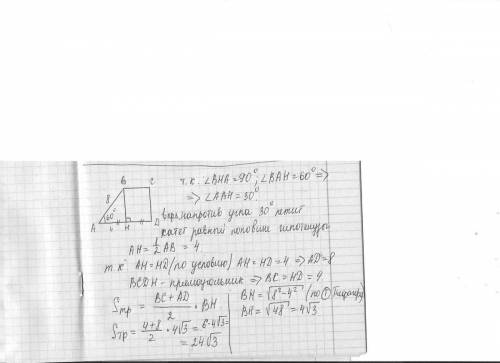 B C
8
60°
A 4 H D
т.к. ∠BHA = 90°; ∠BAH = 60° =>
=> ∠ABH = 30°.
напротив угла 30° лежит
катет равный половине гипотенузы
AH = 1/2 AB = 4
т.к. AH = HD (по условию) AH = HD = 4 => AD = 8
BCDH - прямоугольник => BC = HD = 4
Sтр = (BC + AD)/2 · BH
Sтр = (4+8)/2 · 4√3 = 6·4√3 =
= 24√3
BH = √(8² - 4²) (по т Пифагора)
BH = √48 = 4√3